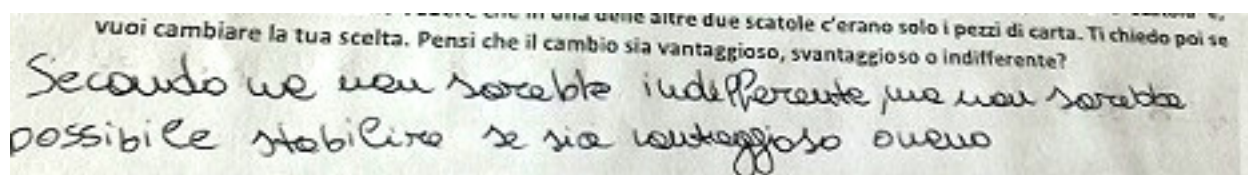 che in una delle altre due scatole c'erano solo i pezzi di carta. Ti chiedo poi se
vuoi cambiare la tua scelta. Pensi che il cambio sia vantaggioso, svantaggioso o indifferente?
Secondo me non sarebbe indifferente, ma non sarebbe
possibile stabilire se sia vantaggioso o meno